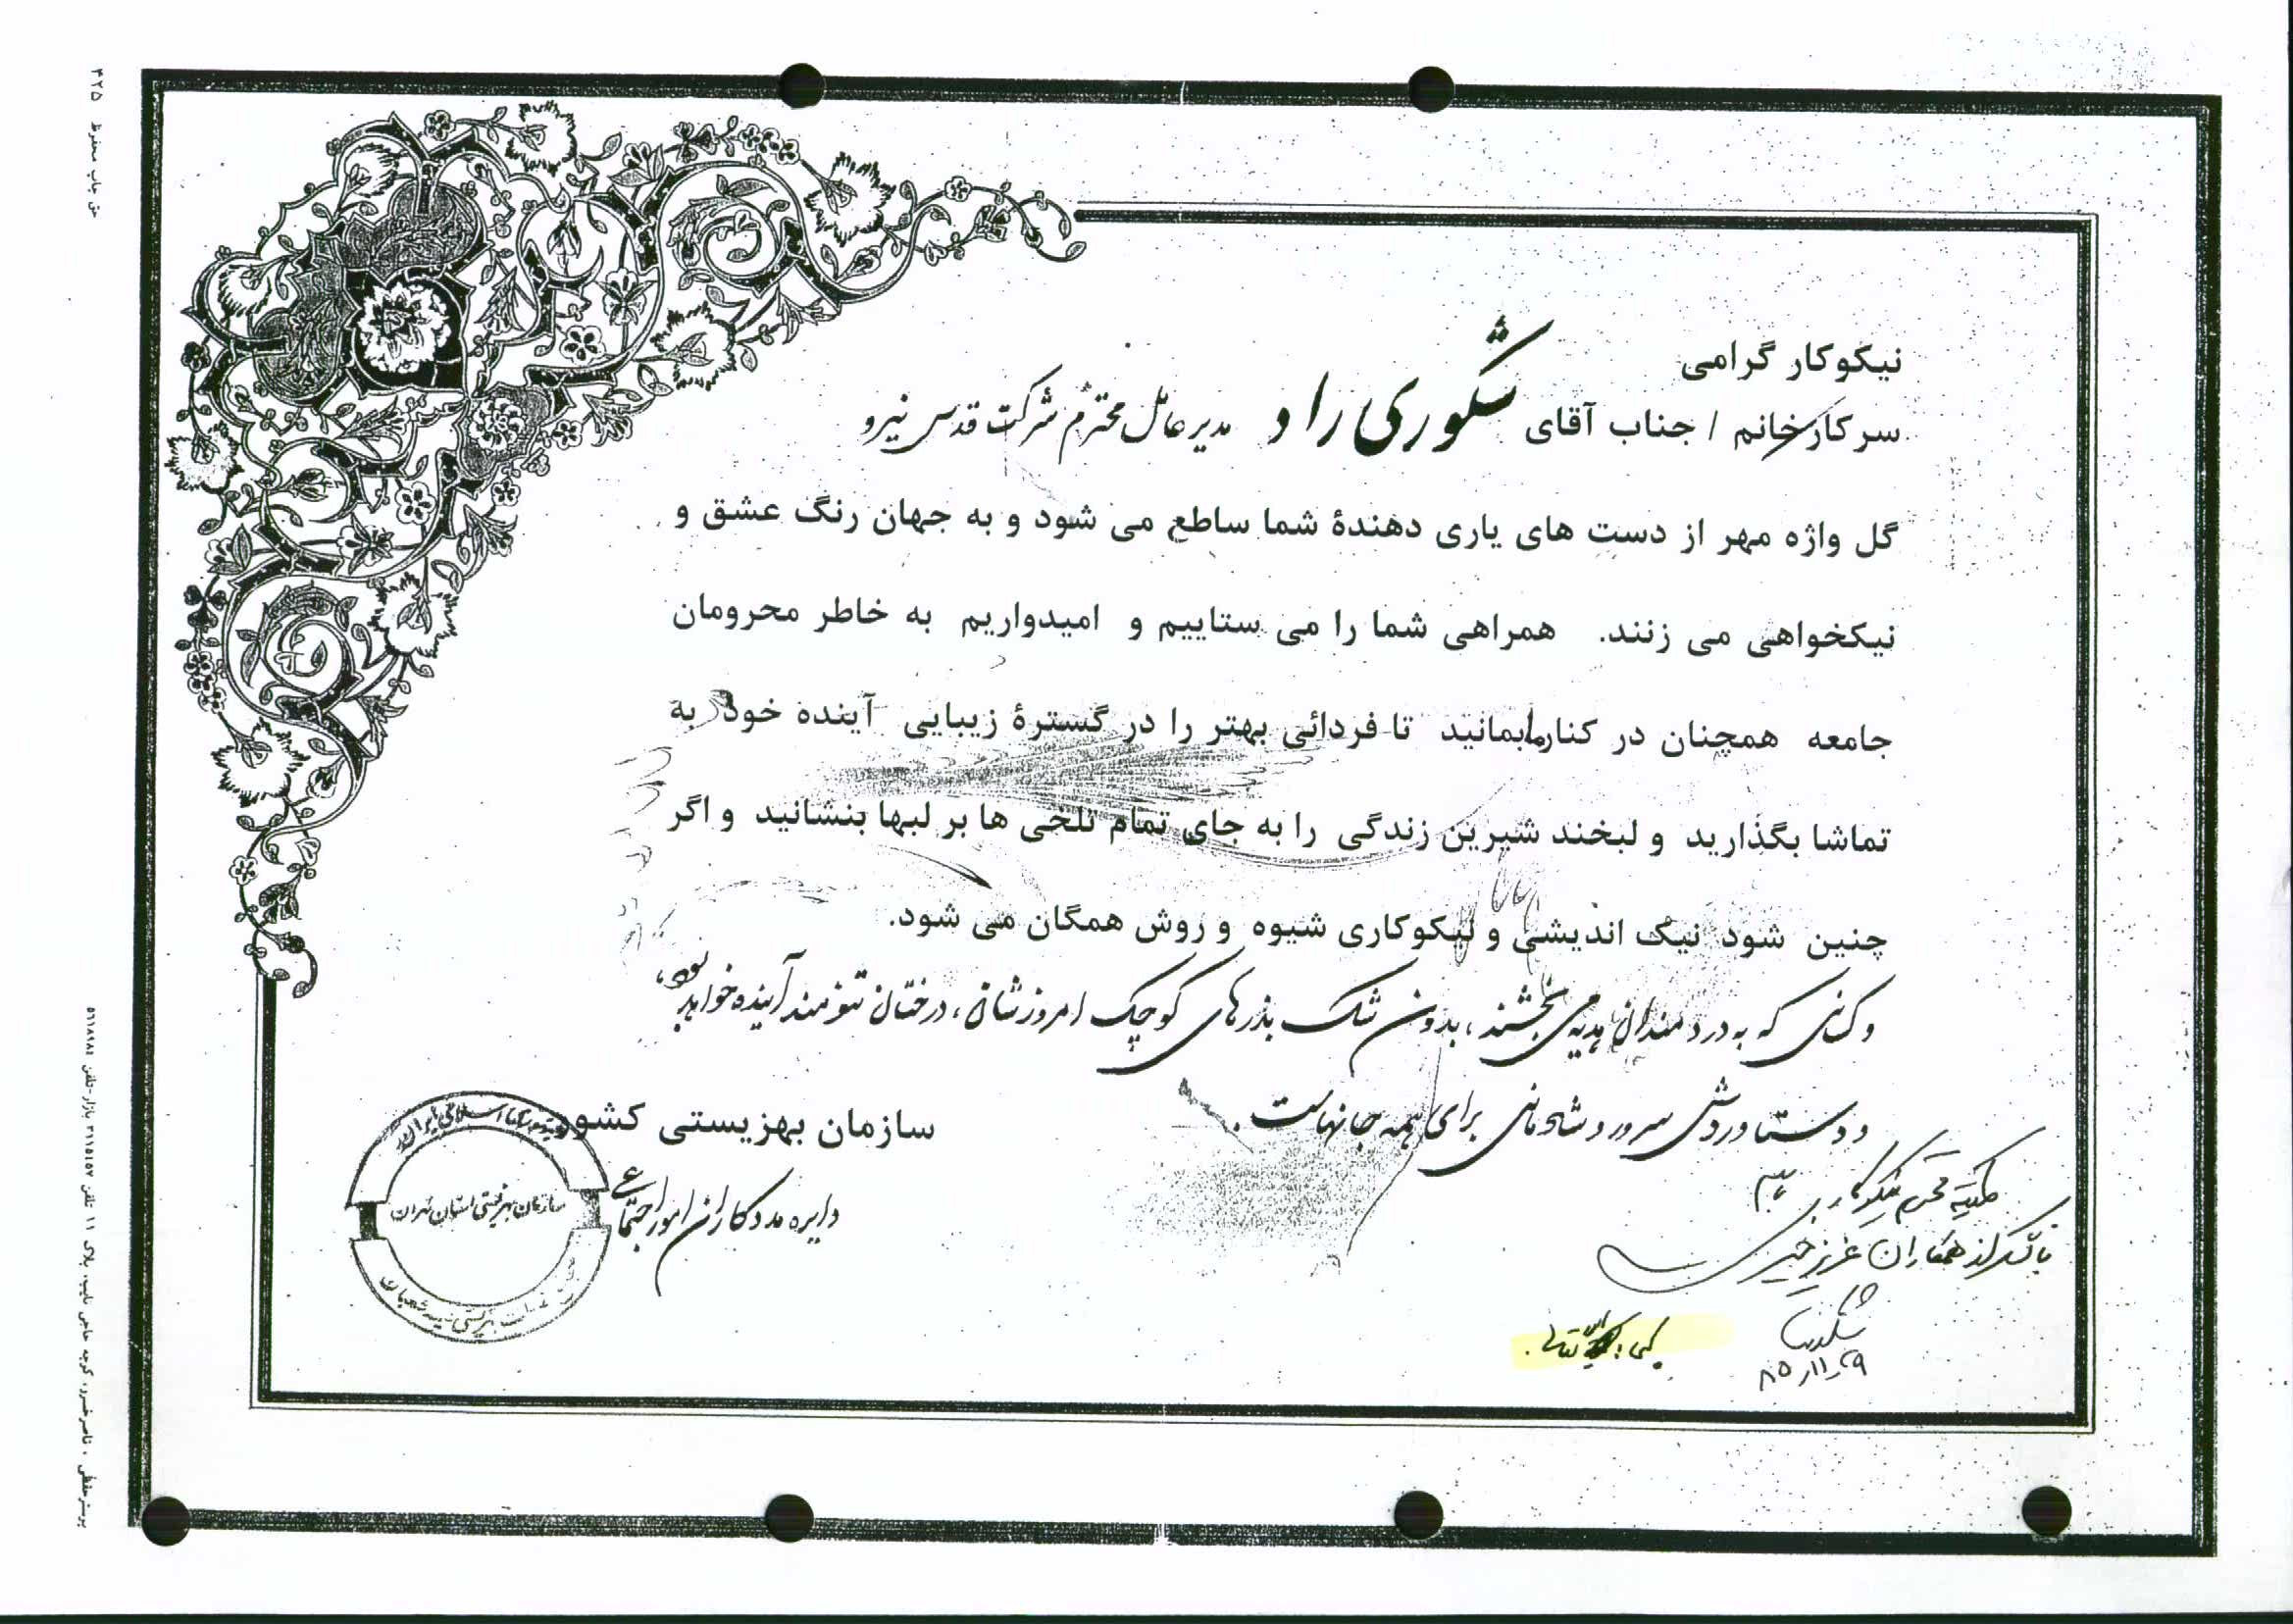 نیکوکار گرامی
سرکار خانم / جناب آقای شکوری راد مدیر عامل محترم شرکت قدس نیرو
گل واژه مهر از دست های یاری دهندۀ شما ساطع می شود و به جهان رنگ عشق و
نیکخواهی می زنند. همراهی شما را می ستاییم و امیدواریم به خاطر محرومان
جامعه همچنان در کنار ما بمانید تا فردائی بهتر را در گسترۀ زیبایی آینده خود به
تماشا بگذارید و لبخند شیرین زندگی را به جای تمام تلخی ها بر لبها بنشانید و اگر
چنین شود نیک اندیشی و نیکوکاری شیوه و روش همگان می شود.
و کسانی که به دردمندان هدیه می بخشند، بدون شک بذرهای کوچک امروزشان، درختان تنومند آینده خواهد بود،
و دستاوردش سرور و شادمانی برای همه جانهاست.
سازمان بهزیستی کشور
دایره مددکاران امور اجتماعی
سازمان بهزیستی استان تهران
کمیته محترم نیکوکاری
با تشکر از همکاران عزیز خیر
۸۵/۱۱/۲۹
حق چاپ محفوظ ۴۲۵
پوستر حقیقی ، ناصرخسرو، کوچه حاجی نایب، پلاک ۱۱ تلفن ۳۱۱۵۱۵۷ بازار-تلفن ۵۶۱۸۹۸۴